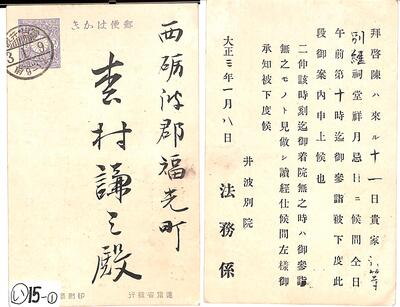 郵便はかき
西砺波郡福光町
吉村謙三殿
遞信省發行
印刷局
い15-①
拜啓陳ハ來ル十一日貴家
別經祠堂祥月忌日ニ候間仝日
午前第十時迄御參詣被下度此
段御案内申上候也
二伸該時刻迄御着院無之時ハ御參詣
無之モノト見做シ讀經仕候間左樣御
承知被下度候
大正三年一月八日
井波別院
法務係